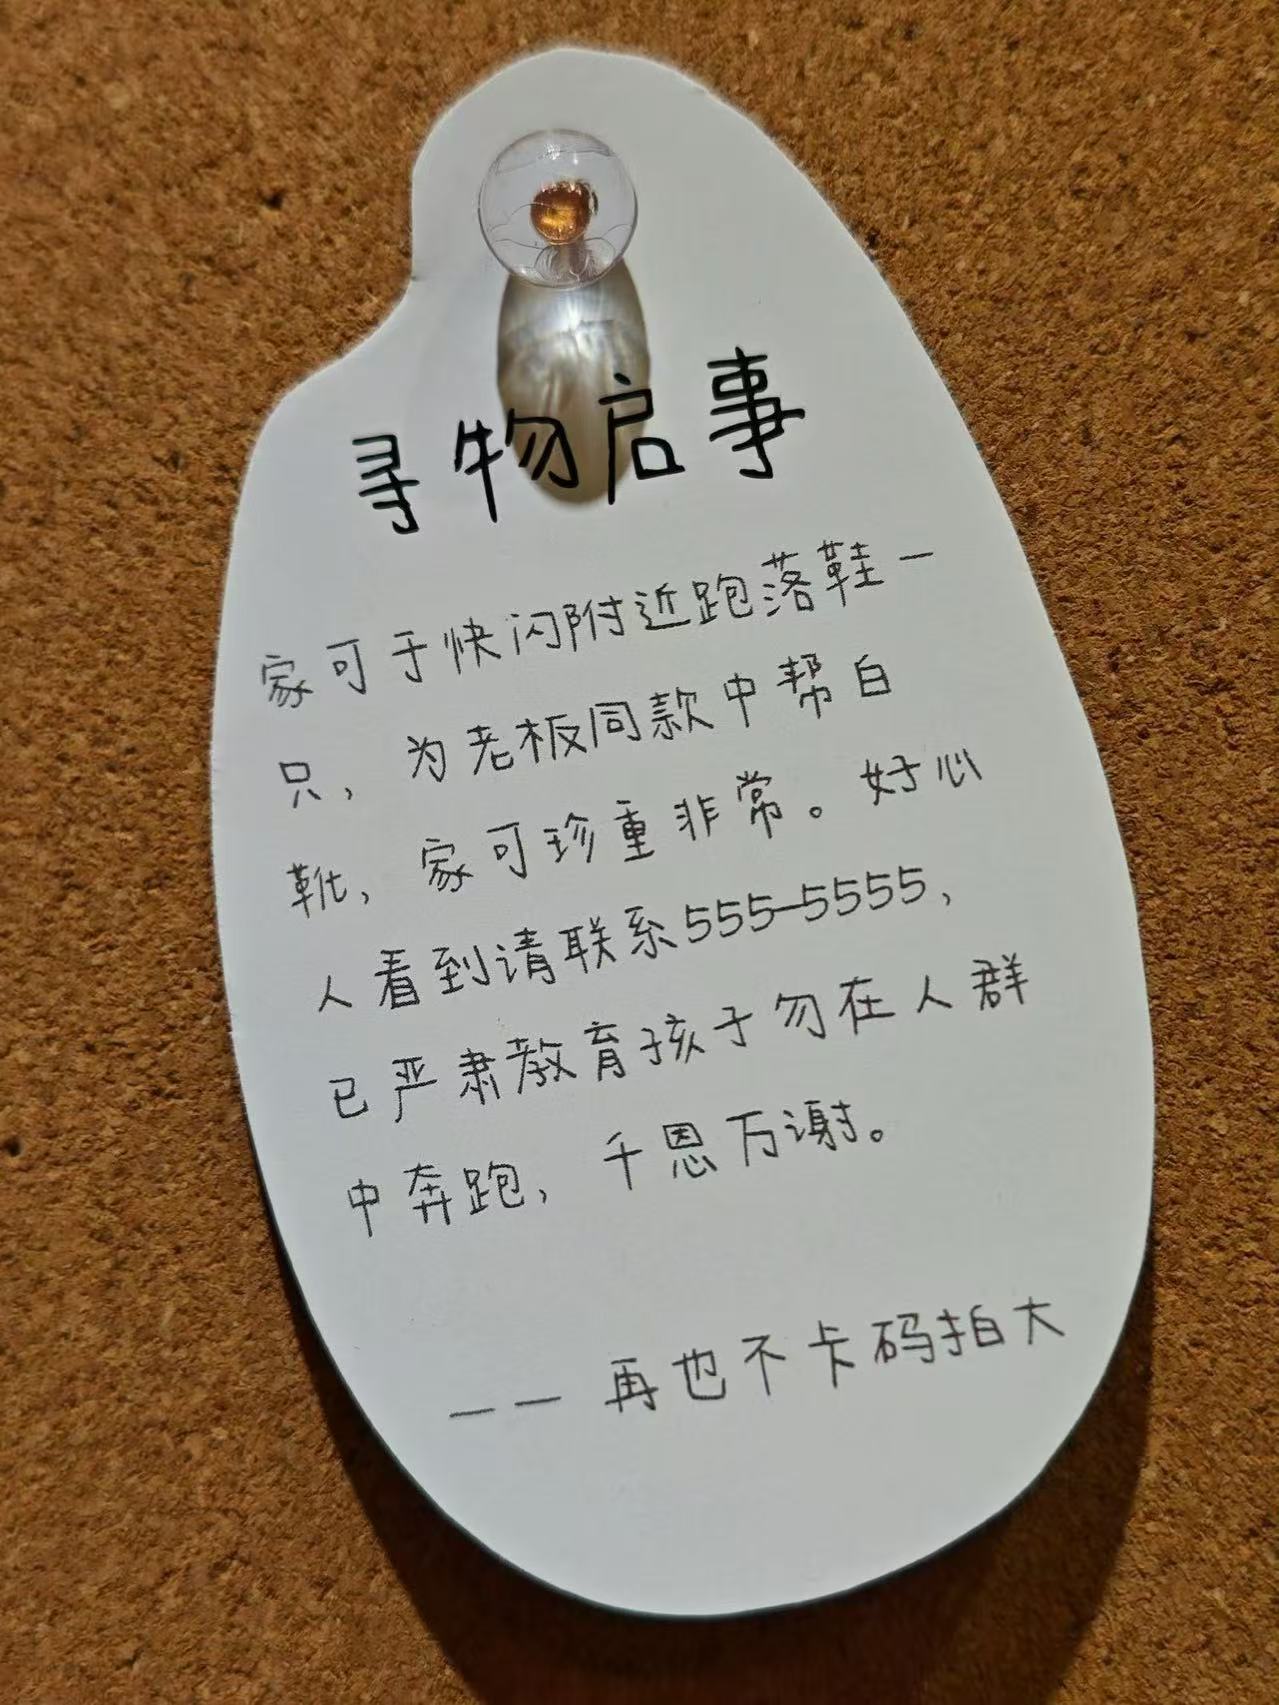 寻物启事
家可于快闪附近跑落鞋一
只，为老板同款中帮白
靴，家可珍重非常。好心
人看到请联系555-5555，
已严肃教育孩子勿在人群
中奔跑，千恩万谢。
——再也不卡码拍大